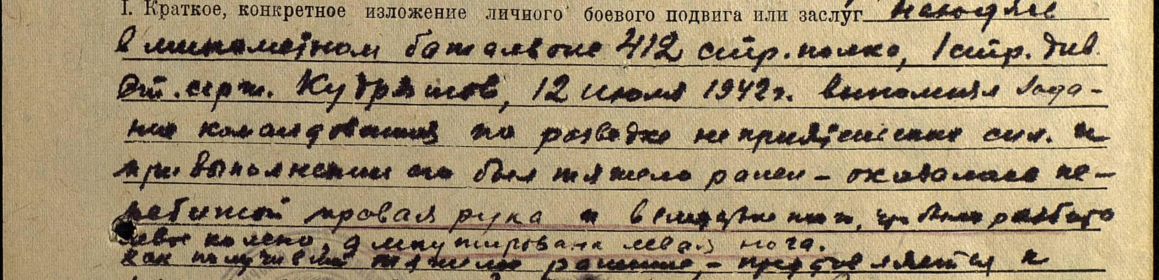 I. Краткое, конкретное изложение личного боевого подвига или заслуг Находясь
в минометном батальоне 412 стр. полка, 1 стр. див.
Ст. серж. Кудряшов, 12 июля 1942 г. выполнял зада-
ние командования по разведке неприятельских сил. и
при выполнении его был тяжело ранен – оказалась пе-
ребитой правая рука и
левое колено, ампутирована левая нога.
как получивший тяжелое ранение, – представляется к